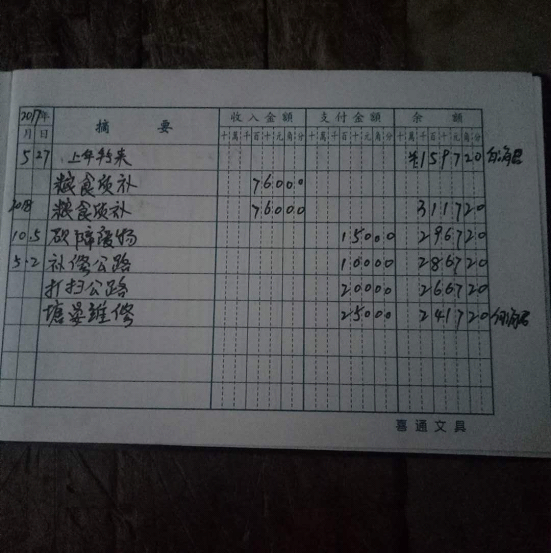 2017年 摘 要 收入金額 支付金額 余 額
月 日 十萬千百十元角分 十萬千百十元角分 十萬千百十元角分
5 27 上年转来 159720
粮食项补 76000
2018 粮食项补 76000 311720
10.5 砍障废物 15000 296720
5.2 补修公路 10000 286720
打扫公路 20000 266720
塘晏維修 25000 241720
喜通文具